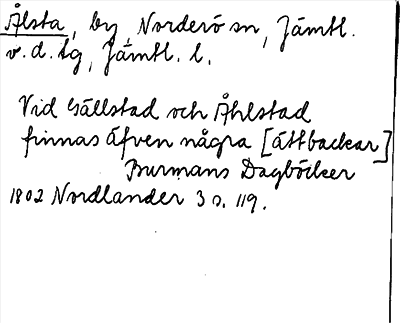 Ålsta, by, Norderö sn, Jämtl.
v. d. tg, Jämtl. l.
Vid Gällstad och Åhlstad
finnas äfven några [ättbackar]
Burmans Dagböcker
1802 Nordlander 3 s. 119.